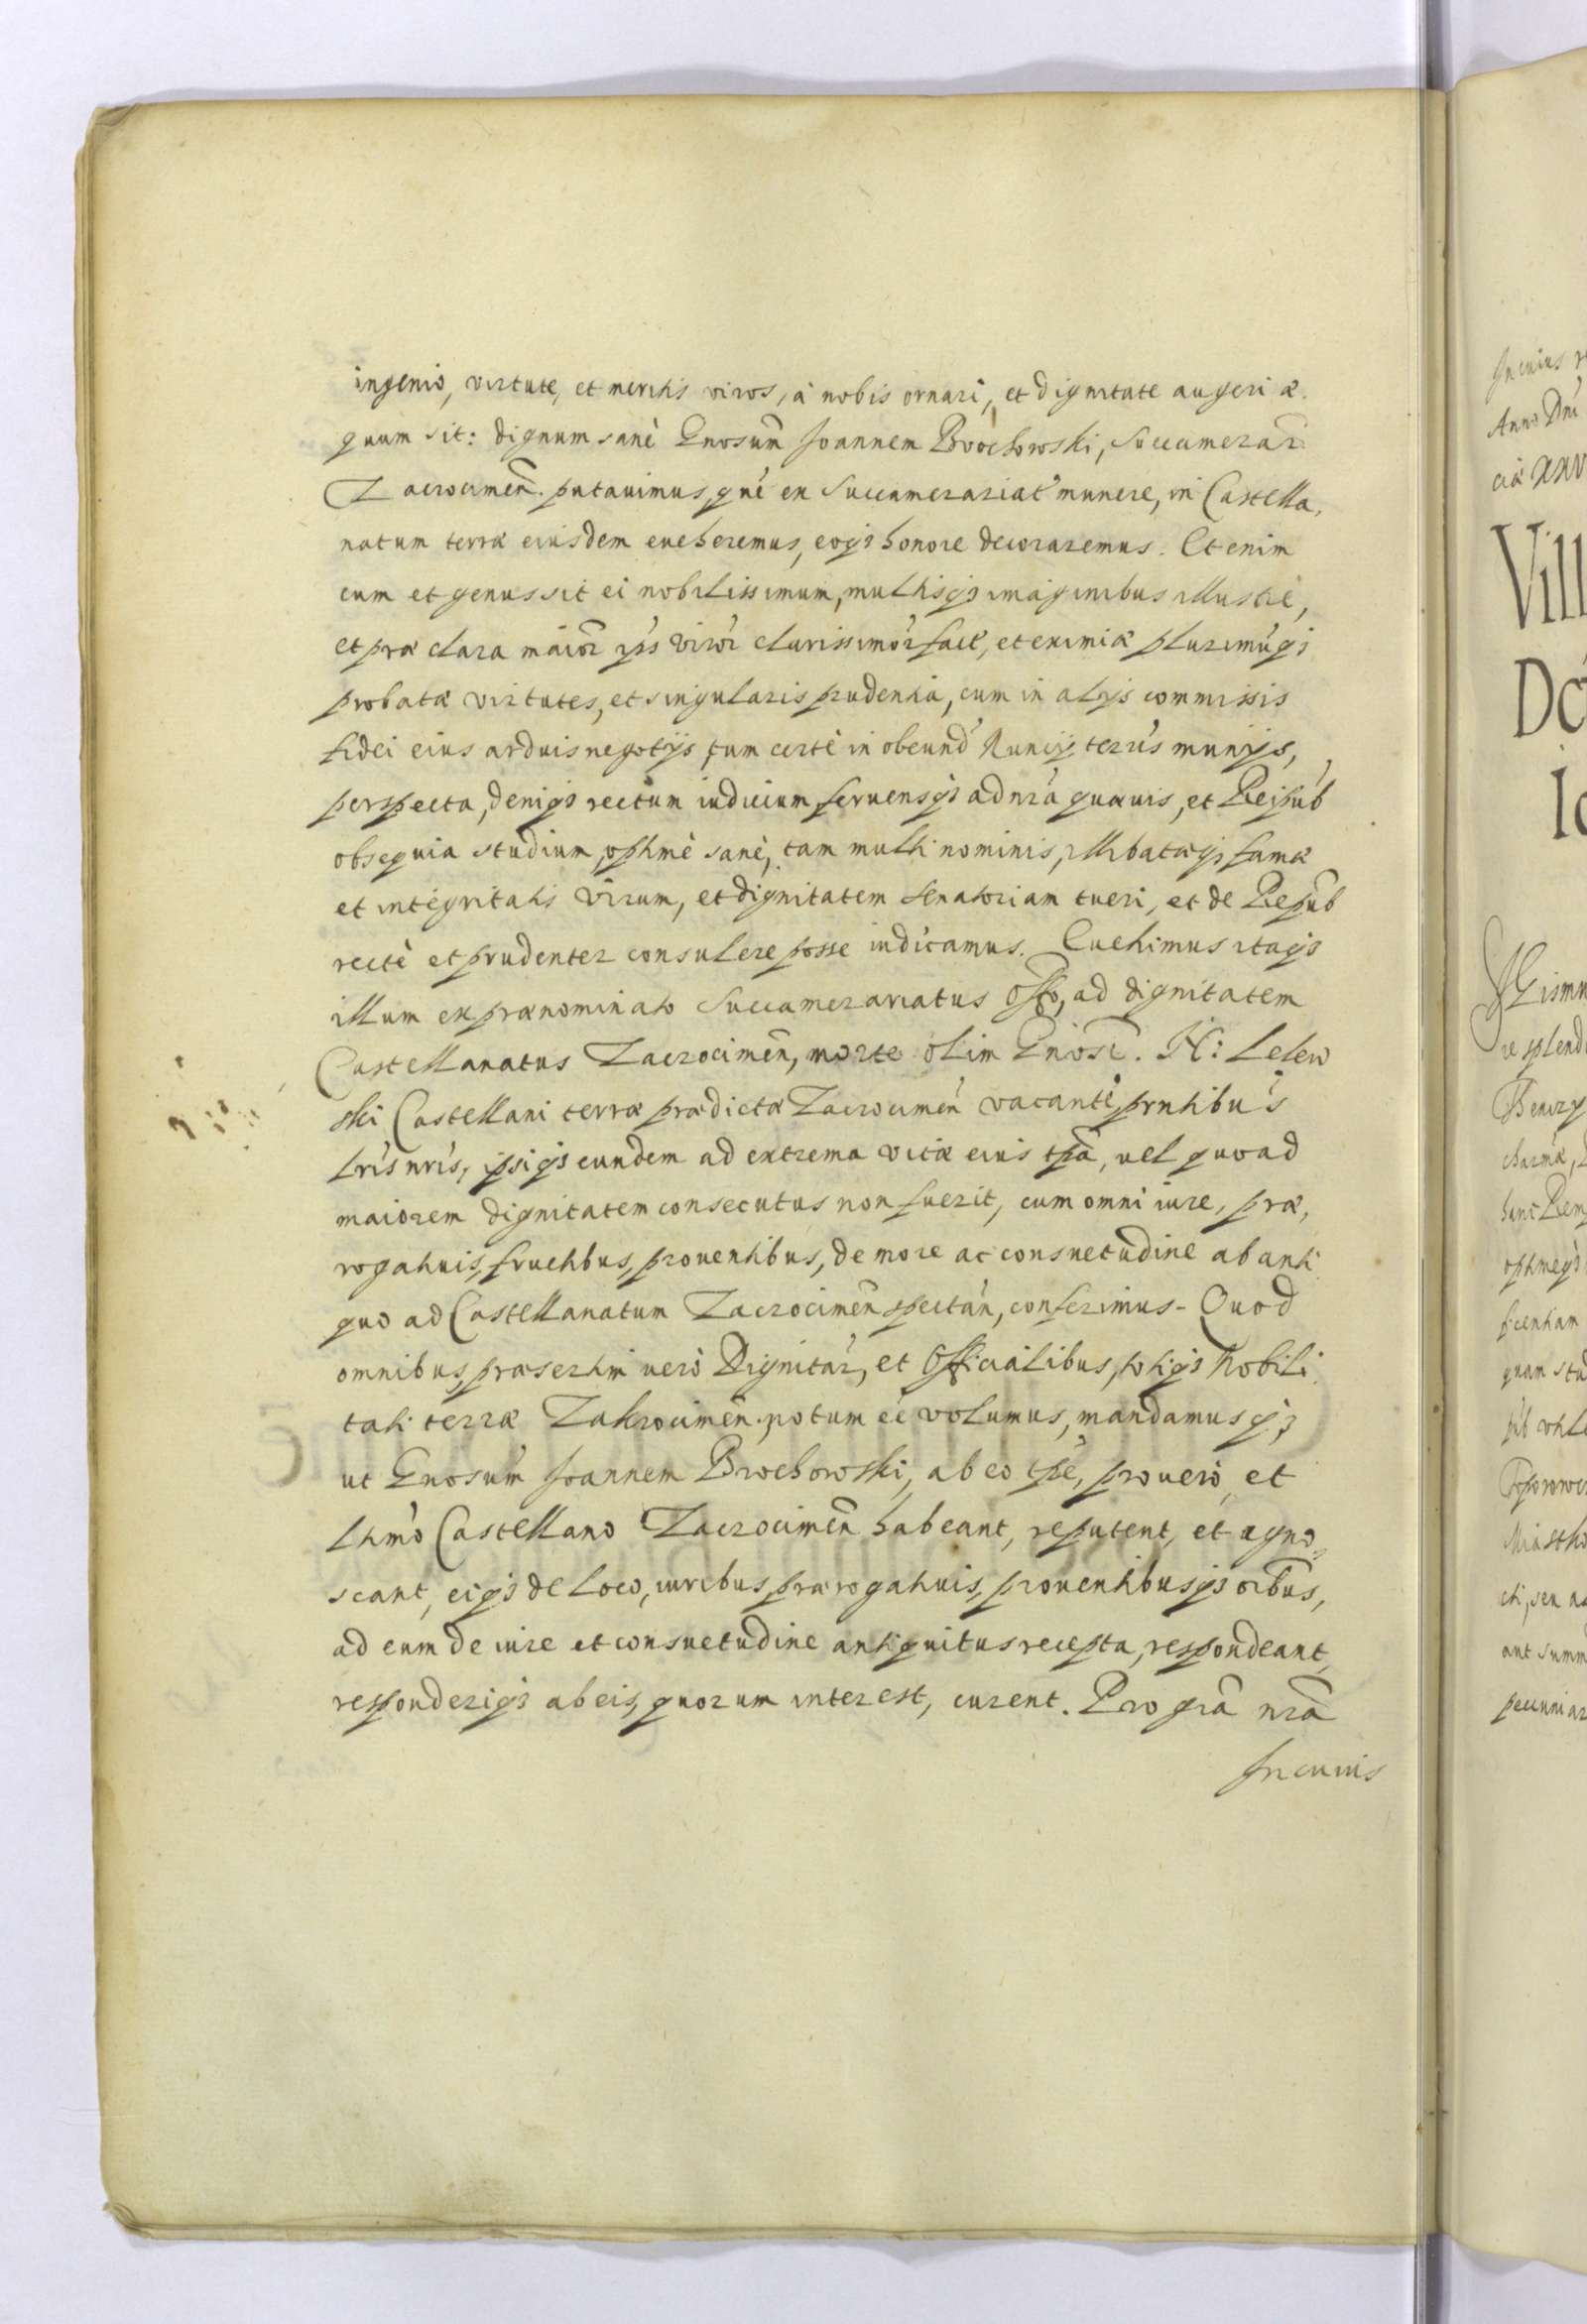 ingenio, virtute, et meritis viros, à nobis ornari, et dignitate augeri æ.
quum sit: dignum sanè Gnosum̃ Joannem Brochowski, Succamerar̃
Zacrocimeñ. putauimus, quẽ ex Succamerariat' munere, in Castella,
natum terræ eiusdem eueheremus, eoq3 honore decoraremus. Etenim
cum et genus sit ei nobilissimum, multisq3 imaginibus illustrè,
et præclara maior̃ viror̃ clarissimor̃ fact, et eximiæ plurimùq3
probatæ virtutes, et singularis prudentia, cum in alijs commissis
fidei eius arduis negotijs, tum certè in obeund' Nuncij terr̃is munijs,
perspecta, deniq3 rectum iudicium feruensq3 ad nr̃a quæuis, et Reipub
obsequia studium, optimè sanè, tam multi nominis, illibatæq3 famæ
et integritatis virum, et dignitatem senatoriam tueri, et de Repub
rectè et prudenter consulere posse iudicamus. Euehimus itaq3
illum ex prænominato Succamerariatus offo, ad dignitatem
Castellanatus Zacrocimeñ, morte olim Gnosi. N: Lelew
ski Castellani terræ prædictæ Zacrocimeñ vacantẽ, prntibus
lrĩs nrĩs, ipsiq3 eundem ad extrema vitæ eius tpã, uel quoad
maiorem dignitatem consecutus non fuerit, cum omni iure, præ,
rogatiuis, fructibus, prouentibus, de more ac consuetudine ab anti
quo ad Castellanatum Zacrocimeñ spectañ, conferimus - Quod
omnibus, præsertim uerò Dignitar̃, et Officialibus, totiq3 Nobili
tati terræ Zakrocimeñ. notum eẽ volumus, mandamusq3,
ut Gnosum̃ Joannem Brochowski, ab eo tpẽ, pro uero, et
ltimõ Castellano Zacrocimeñ habeant, reputent, et agno
scant, eiq3 de loco, iuribus, prærogatiuis, prouentibusq3 oĩbus,
ad eum de iure et consuetudine antiquitus recepta, respondeant,
responderiq3 ab eis, quorum interest, curent. Pro grã nrã
In cuius
Anno Dni
Vill